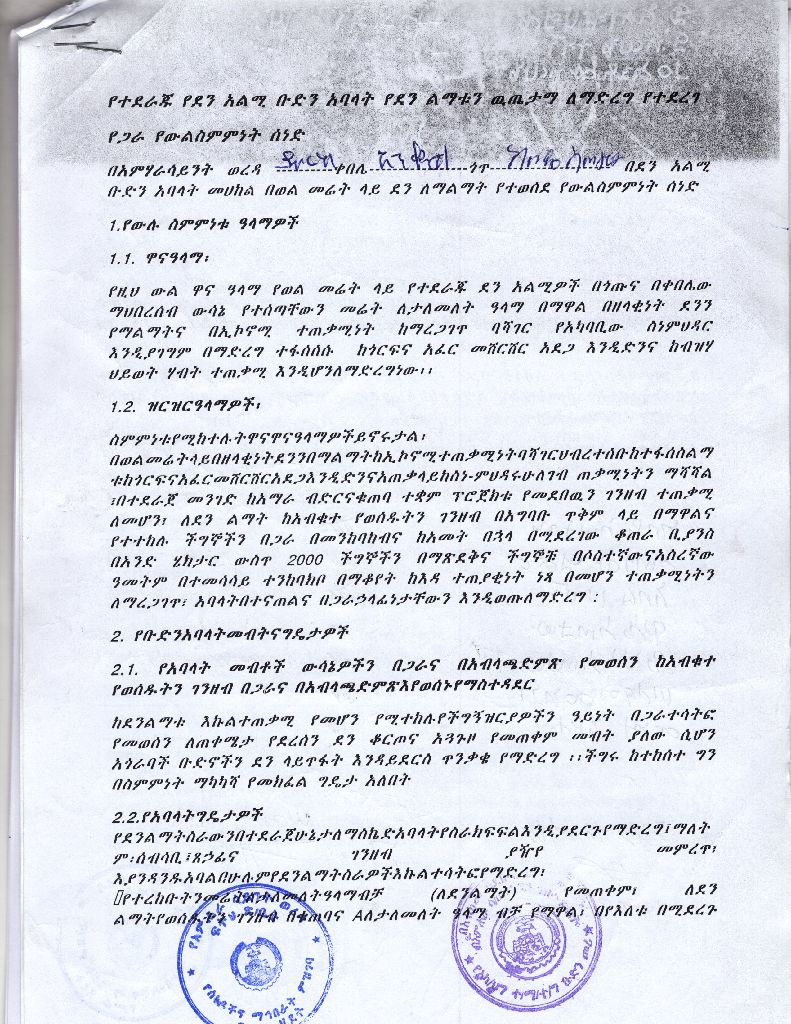 የተደራጁ የደን አልሚ ቡድን አባላት የደን ልማቱን ዉጤታማ ለማድረግ የተደረገ
የጋራ የውልስምምነት ሰነድ
በአምሃራሳይንት ወረዳ ቀበሌ ጎጥ በደን አልሚ
ቡድን አባላት መሀከል በወል መሬት ላይ ደን ለማልማት የተወሰደ የውልስምምነት ሰነድ
1.የውሉ ስምምነቱ ዓላማዎች
1.1. ዋናዓላማ፡
የዚህ ውል ዋና ዓላማ የወል መሬት ላይ የተደራጁ ደን አልሚዎች በጎጡና በቀበሌው
ማህበረሰብ ውሳኔ የተሰጣቸውን መሬት ለታለመለት ዓላማ በማዋል በዘላቂነት ደንን
የማልማትና በኢኮኖሚ ተጠቃሚነት ከማረጋገጥ ባሻገር የአካባቢው ስነምህዳር
እንዲያገግም በማድረግ ተፋሰሰሱ ከጎርፍና አፈር መሸርሸር አደጋ እንዲድንና ከብዝሃ
ህይወት ሃብት ተጠቃሚ እንዲሆንለማድረግነው፡፡
1.2. ዝርዝርዓላማዎች፡
ስምምነቱየሚከተሉትዋናዋናዓላማዎችይኖሩታል፡
በወልመሬትላይበዘላቂነትደንንበማልማትከኢኮኖሚተጠቃሚነትባሻገርህብረተሰቡከተፋሰስልማ
ቱከጎርፍናአፈርመሸርሸርአደጋእንዲድንናአጠቃላይከስነ-ምህዳሩሁለገብ ጠቃሚነትን ማሻሻል
፣በተደራጀ መንገድ ከአማራ ብድርናቁጠባ ተቋም ፕሮጀክቱ የመደበዉን ገንዘብ ተጠቃሚ
ለመሆን፣ ለደን ልማት ከአብቁተ የወሰዱትን ገንዘብ በአግባቡ ጥቅም ላይ በማዋልና
የተተከሉ ችግኞችን በጋራ በመንከባከብና ከአመት በኋላ በሚደረገው ቆጠራ ቢያንስ
በአንድ ሄክታር ውስጥ 2000 ችግኞችን በማጽደቅና ችግኞቹ በሶስተኛውናአስረኛው
ዓመትም በተመሳሳይ ተንከባክቦ በማቆየት ከእዳ ተጠያቂነት ነጻ በመሆን ተጠቃሚነትን
ለማረጋገጥ፣ አባላትበተናጠልና በጋራኃላፊነታቸውን እንዲወጡለማድረግ ፡
2. የቡድንአባላትመብትናግዴታዎች
2.1. የአባላት መብቶች ውሳኔዎችን በጋራና በአብላጫድምጽ የመወሰን ከአብቁተ
የወሰዱትን ገንዘብ በጋራና በአብላጫድምጽእየወሰኑየማስተዳደር
ከደንልማቱ እኩልተጠቃሚ የመሆን የሚተከሉየችግኝዝርያዎችን ዓይነት በጋራተሳትፎ
የመወሰን ለጠቀሜታ የደረሰን ደን ቆርጦና አጓጉዞ የመጠቀም መብት ያለው ሲሆን
አጎራባች ቡድኖችን ደን ላይጥፋት እንዳይደርስ ጥንቃቄ የማድረግ ፡፡ችግሩ ከተከሰተ ግን
በስምምነት ማካካሻ የመክፈል ግዴታ አለበት
2.2.የአባላትግዴታዎች
የደንልማትስራውንበተደራጀሁኔታለማስኬድአባላትየስራክፍፍልእንዲያደርጉየማድረግ፣ማለት
ም፡ሰብሳቢ፣ጸኃፊና ገንዘብ ያዥየ መምረጥ፣
እያንዳንዱአባልበሁሉምየደንልማትስራዎችእኩልተሳትፎየማድረግ፣
የተረከቡትንመሬትለታለመለትዓላማብቻ (ለደንልማት) የመጠቀም፣ ለደን
ልማትየወሰዱትን ገንዘብ በቁጠባና Aለታለመለት ዓላማ ብቻ የማዋል፣ በየእለቱ በሚደረጉ